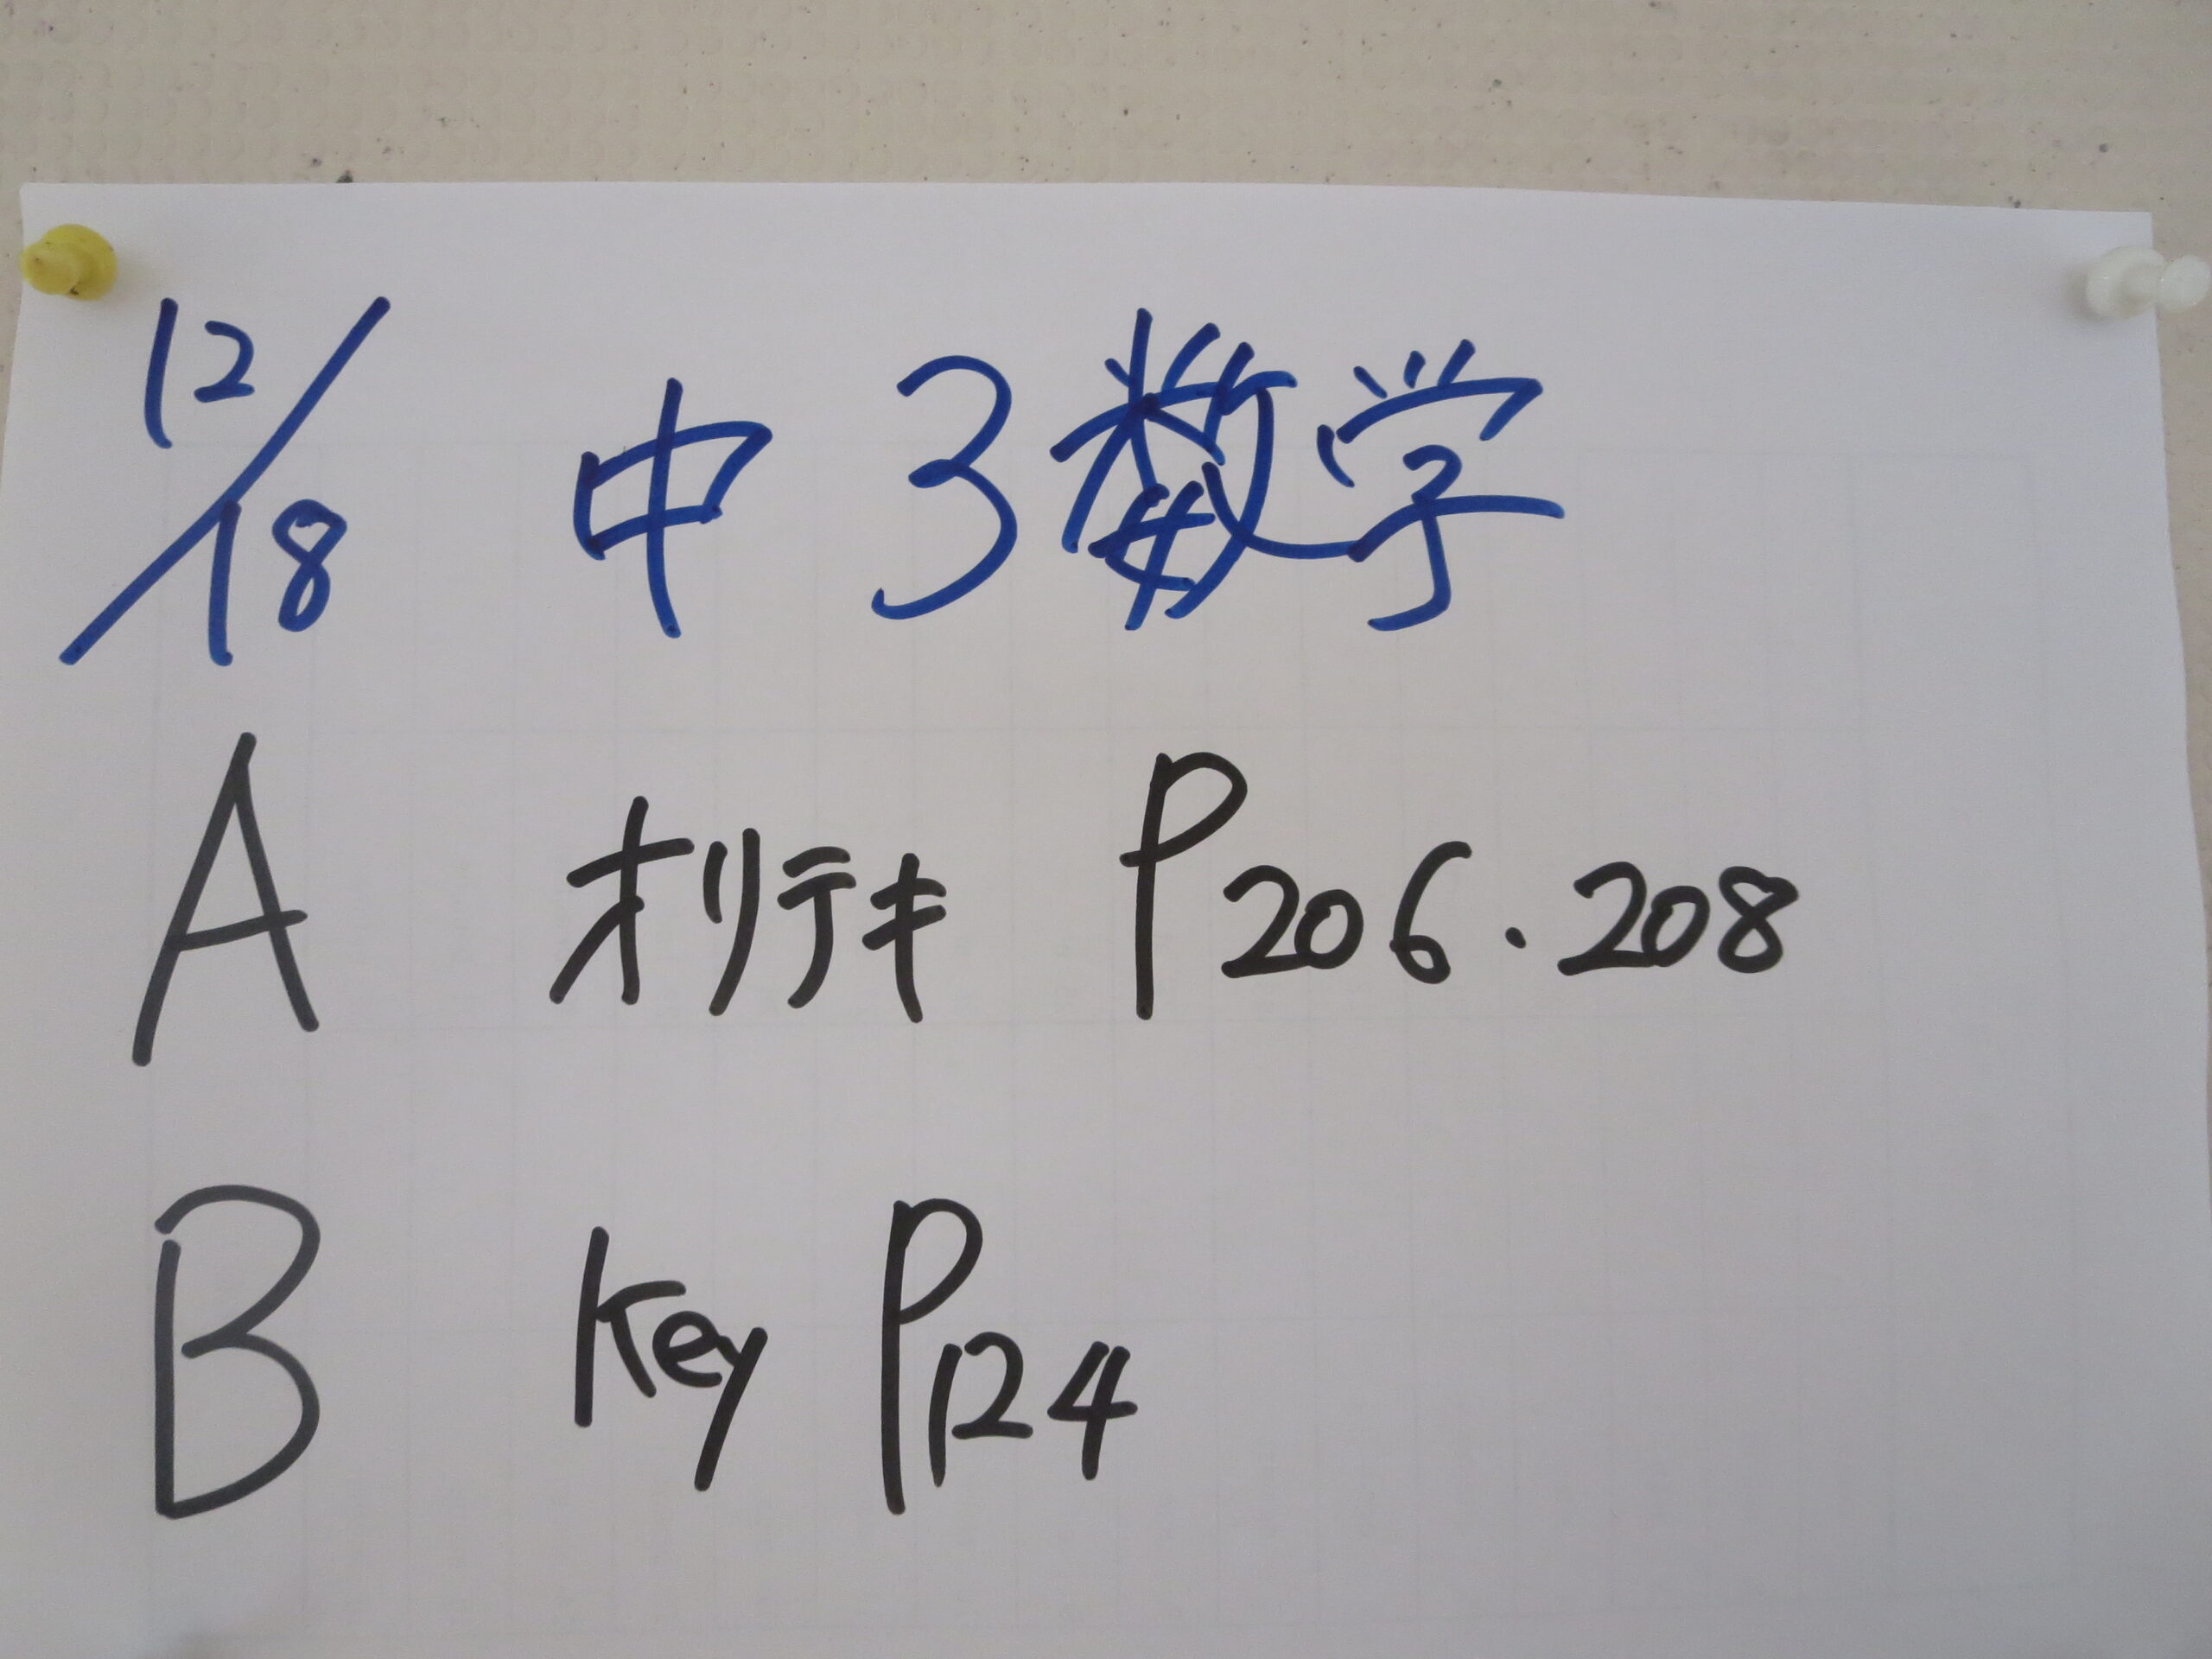 12/18 中3数学
A オリテキ P206・208
B Key P124